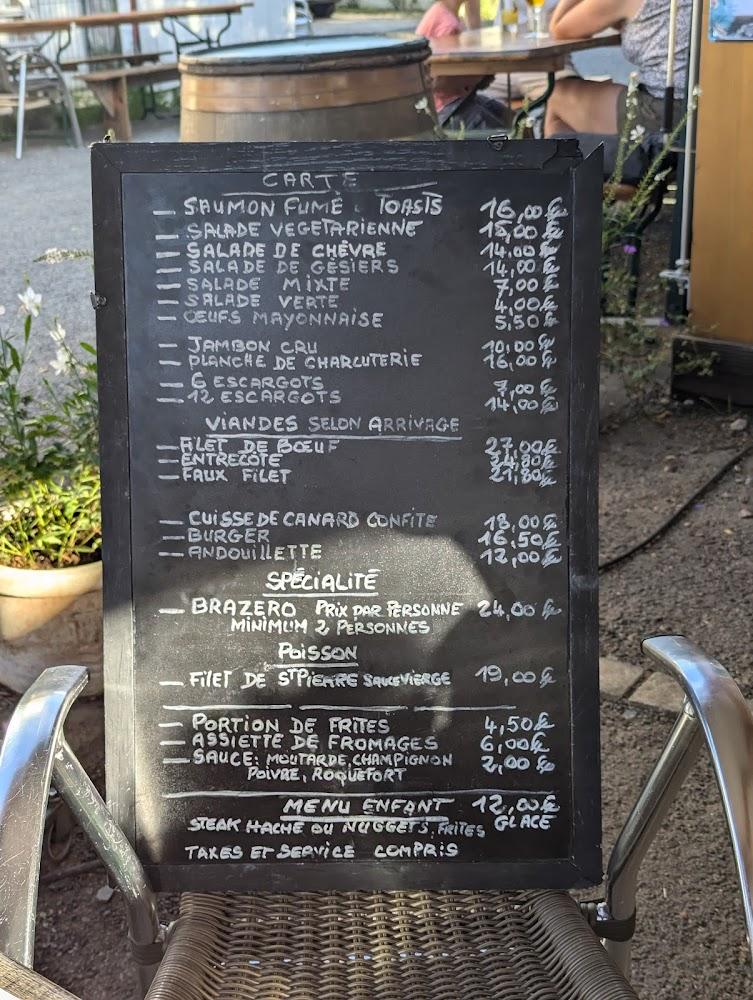 CARTE
— SAUMON FUMÉ TOASTS 16,00€
— SALADE VEGETARIENNE 15,00€
— SALADE DE CHÈVRE 14,00€
— SALADE DE GÉSIERS 14,00€
— SALADE MIXTE 7,00€
— SALADE VERTE 4,00€
— ŒUFS MAYONNAISE 5,50€
— JAMBON CRU 10,00€
— PLANCHE DE CHARCUTERIE 16,00€
— 6 ESCARGOTS 7,00€
— 12 ESCARGOTS 14,00€
VIANDES SELON ARRIVAGE
— FILET DE BŒUF 27,00€
— ENTRECÔTE 24,80€
— FAUX FILET 21,80€
— CUISSE DE CANARD CONFITE 18,00€
— BURGER 16,50€
— ANDOUILLETTE 12,00€
SPÉCIALITÉ
— BRAZERO PRIX PAR PERSONNE 24,00€
MINIMUM 2 PERSONNES
POISSON
— FILET DE ST PIERRE SAUCE VIERGE 19,00€
— PORTION DE FRITES 4,50€
— ASSIETTE DE FROMAGES 6,00€
— SAUCE: MOUTARDE, CHAMPIGNON 2,00€
POIVRE, ROQUEFORT
MENU ENFANT 12,00€
STEAK HACHÉ OU NUGGETS, FRITES GLACE
TAXES ET SERVICE COMPRIS